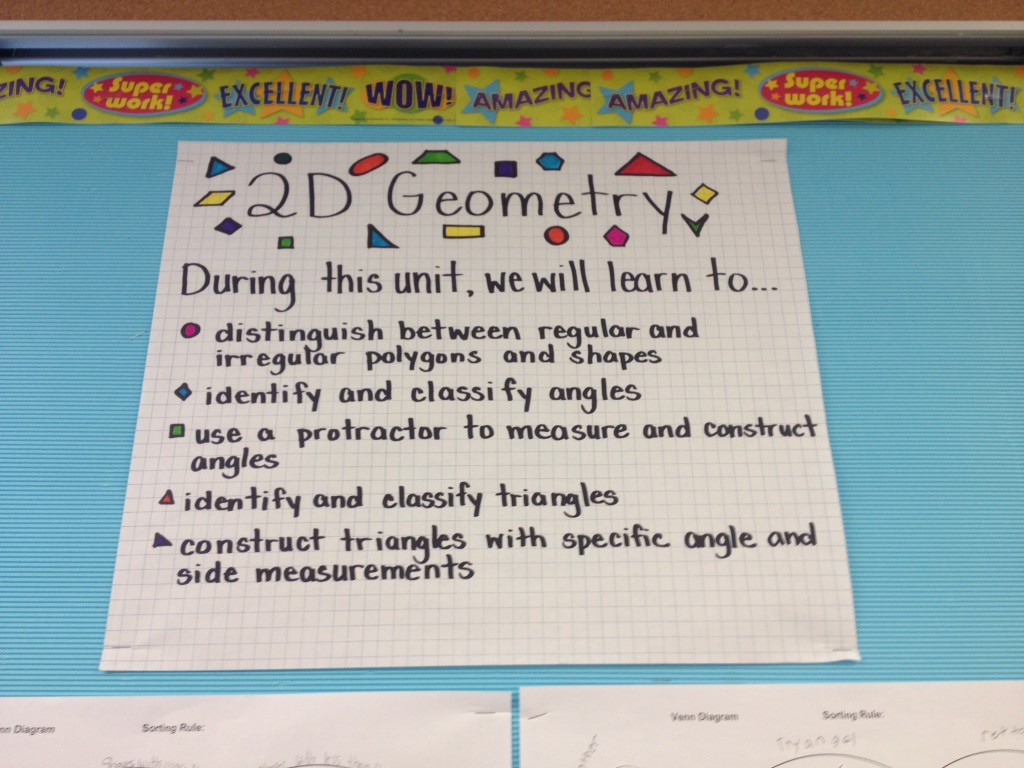 ZING! Super work! EXCELLENT! WOW! AMAZING AMAZING! Super work! EXCELLENT!
2D Geometry
During this unit, we will learn to...
distinguish between regular and
irregular polygons and shapes
identify and classify angles
use a protractor to measure and construct
angles
identify and classify triangles
construct triangles with specific angle and
side measurements
nn Diagram Sorting Rule:
Venn Diagram Sorting Rule: